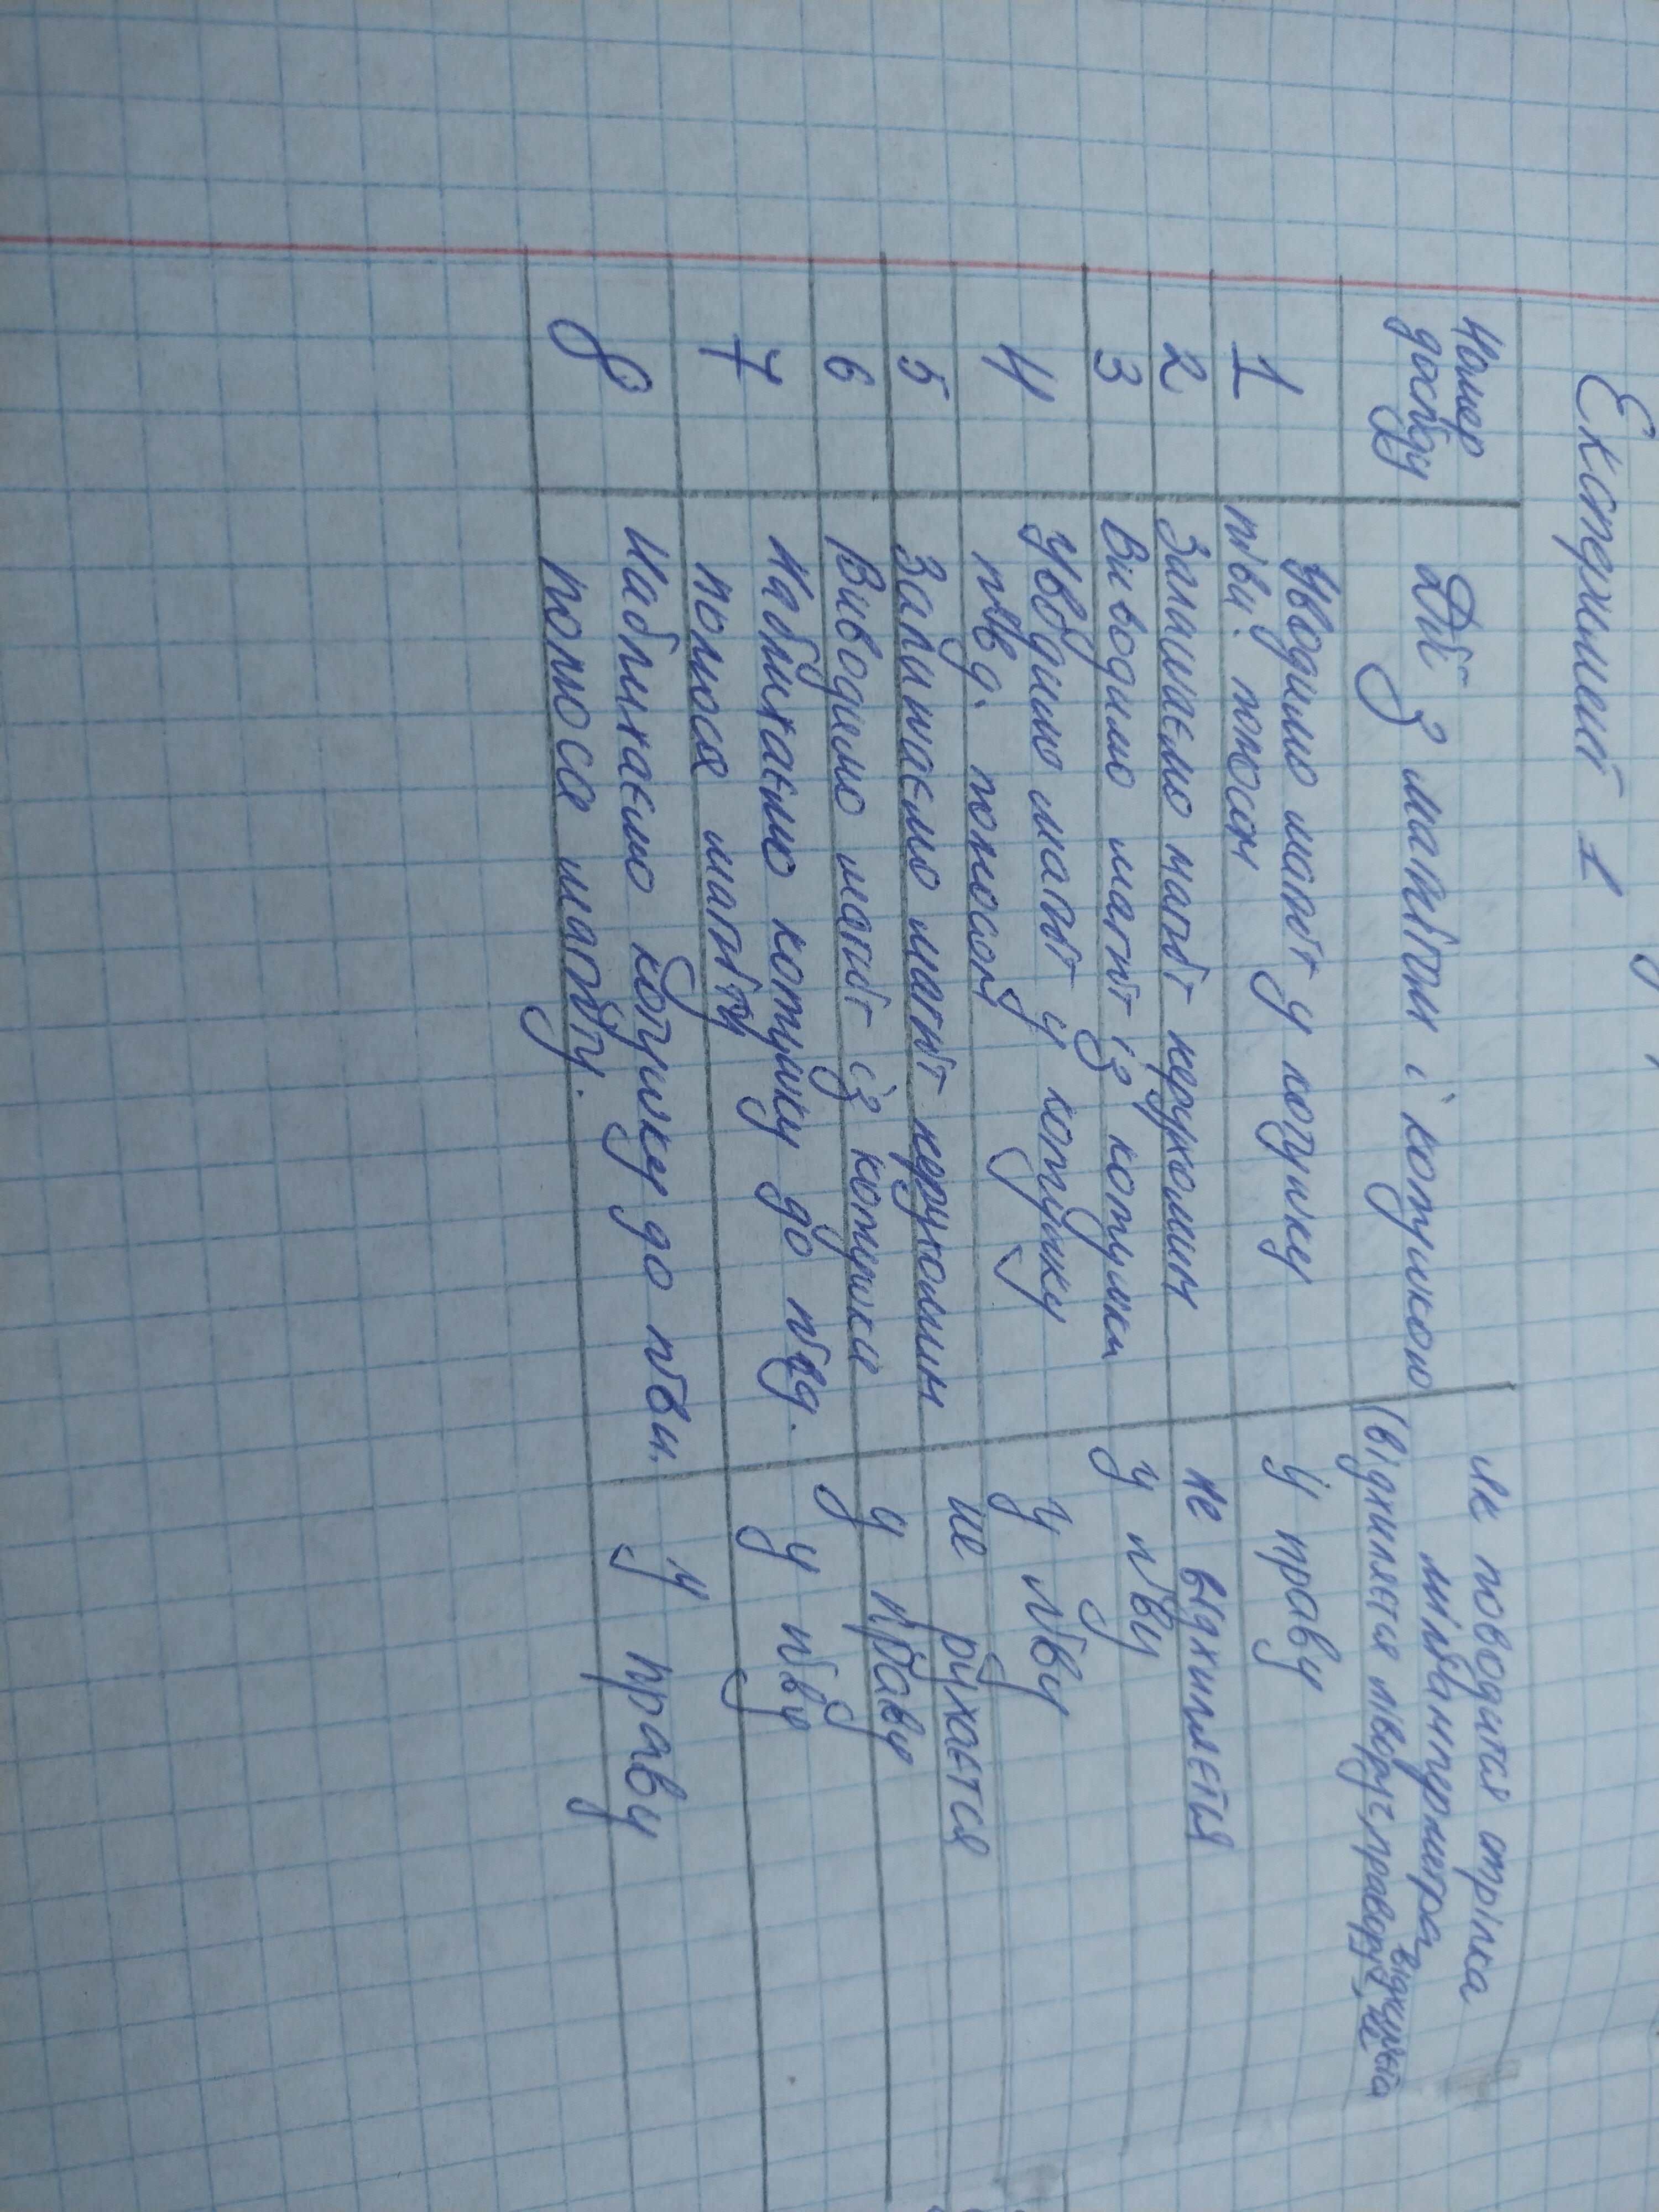 Експеримент 1
Номер досліду
Дії з магнітом і котушкою
Як поводиться стрілка міліамперметра (відхиляється ліворуч, праворуч, не відхиляється)
1
Уводимо магніт у котушку
півн. полюсом
у праву
2
Залишаємо магніт нерухомим
не відхиляється
3
Виводимо магніт із котушки
у ліву
4
Уводимо магніт у котушку
півд. полюсом
у ліву
5
Залишаємо магніт нерухомим
не рухається
6
Виводимо магніт із котушки
у праву
7
Наближаємо котушку до півд.
полюса магніту
у ліву
8
Наближаємо котушку до півн.
полюса магніту.
у праву